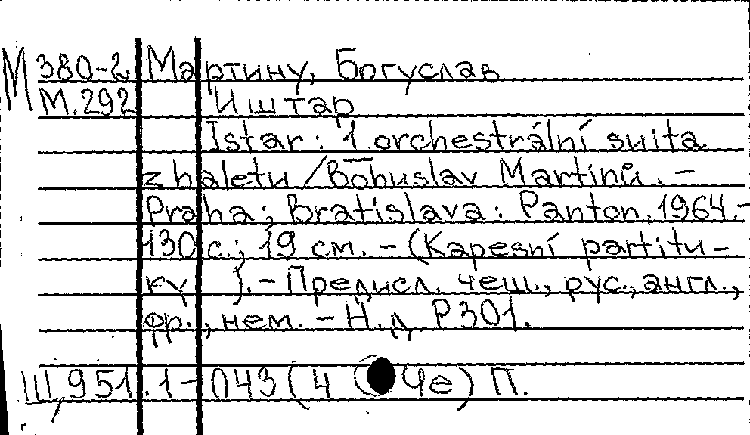 М 380-2 Мартину, Богуслав
М.292 Иштар
Istar: 1. orchestrální suita
z baletu / Bohuslav Martinů. –
Praha; Bratislava: Panton, 1964. –
130 с.; 19 см. – (Kapesní partitu-
ry ). – Предисл. чеш., рус., англ.,
фр., нем. – Н.д. P301.
Щ951.1-043(4 Че) П.